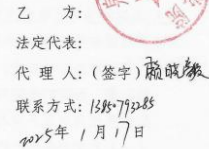 乙　　方：
法定代表：
代 理 人：（签字）赖晓毅
联系方式：13950793285
2025年 1 月 17 日